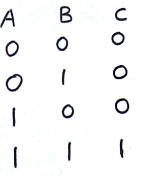 A B C
0 0 0
0 1 0
1 0 0
1 1 1